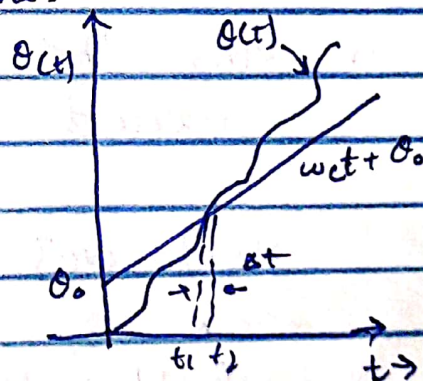 θ(t)
θ(t)
ω_c t + θ₀
θ₀
Δt
t₁ t₂
t →